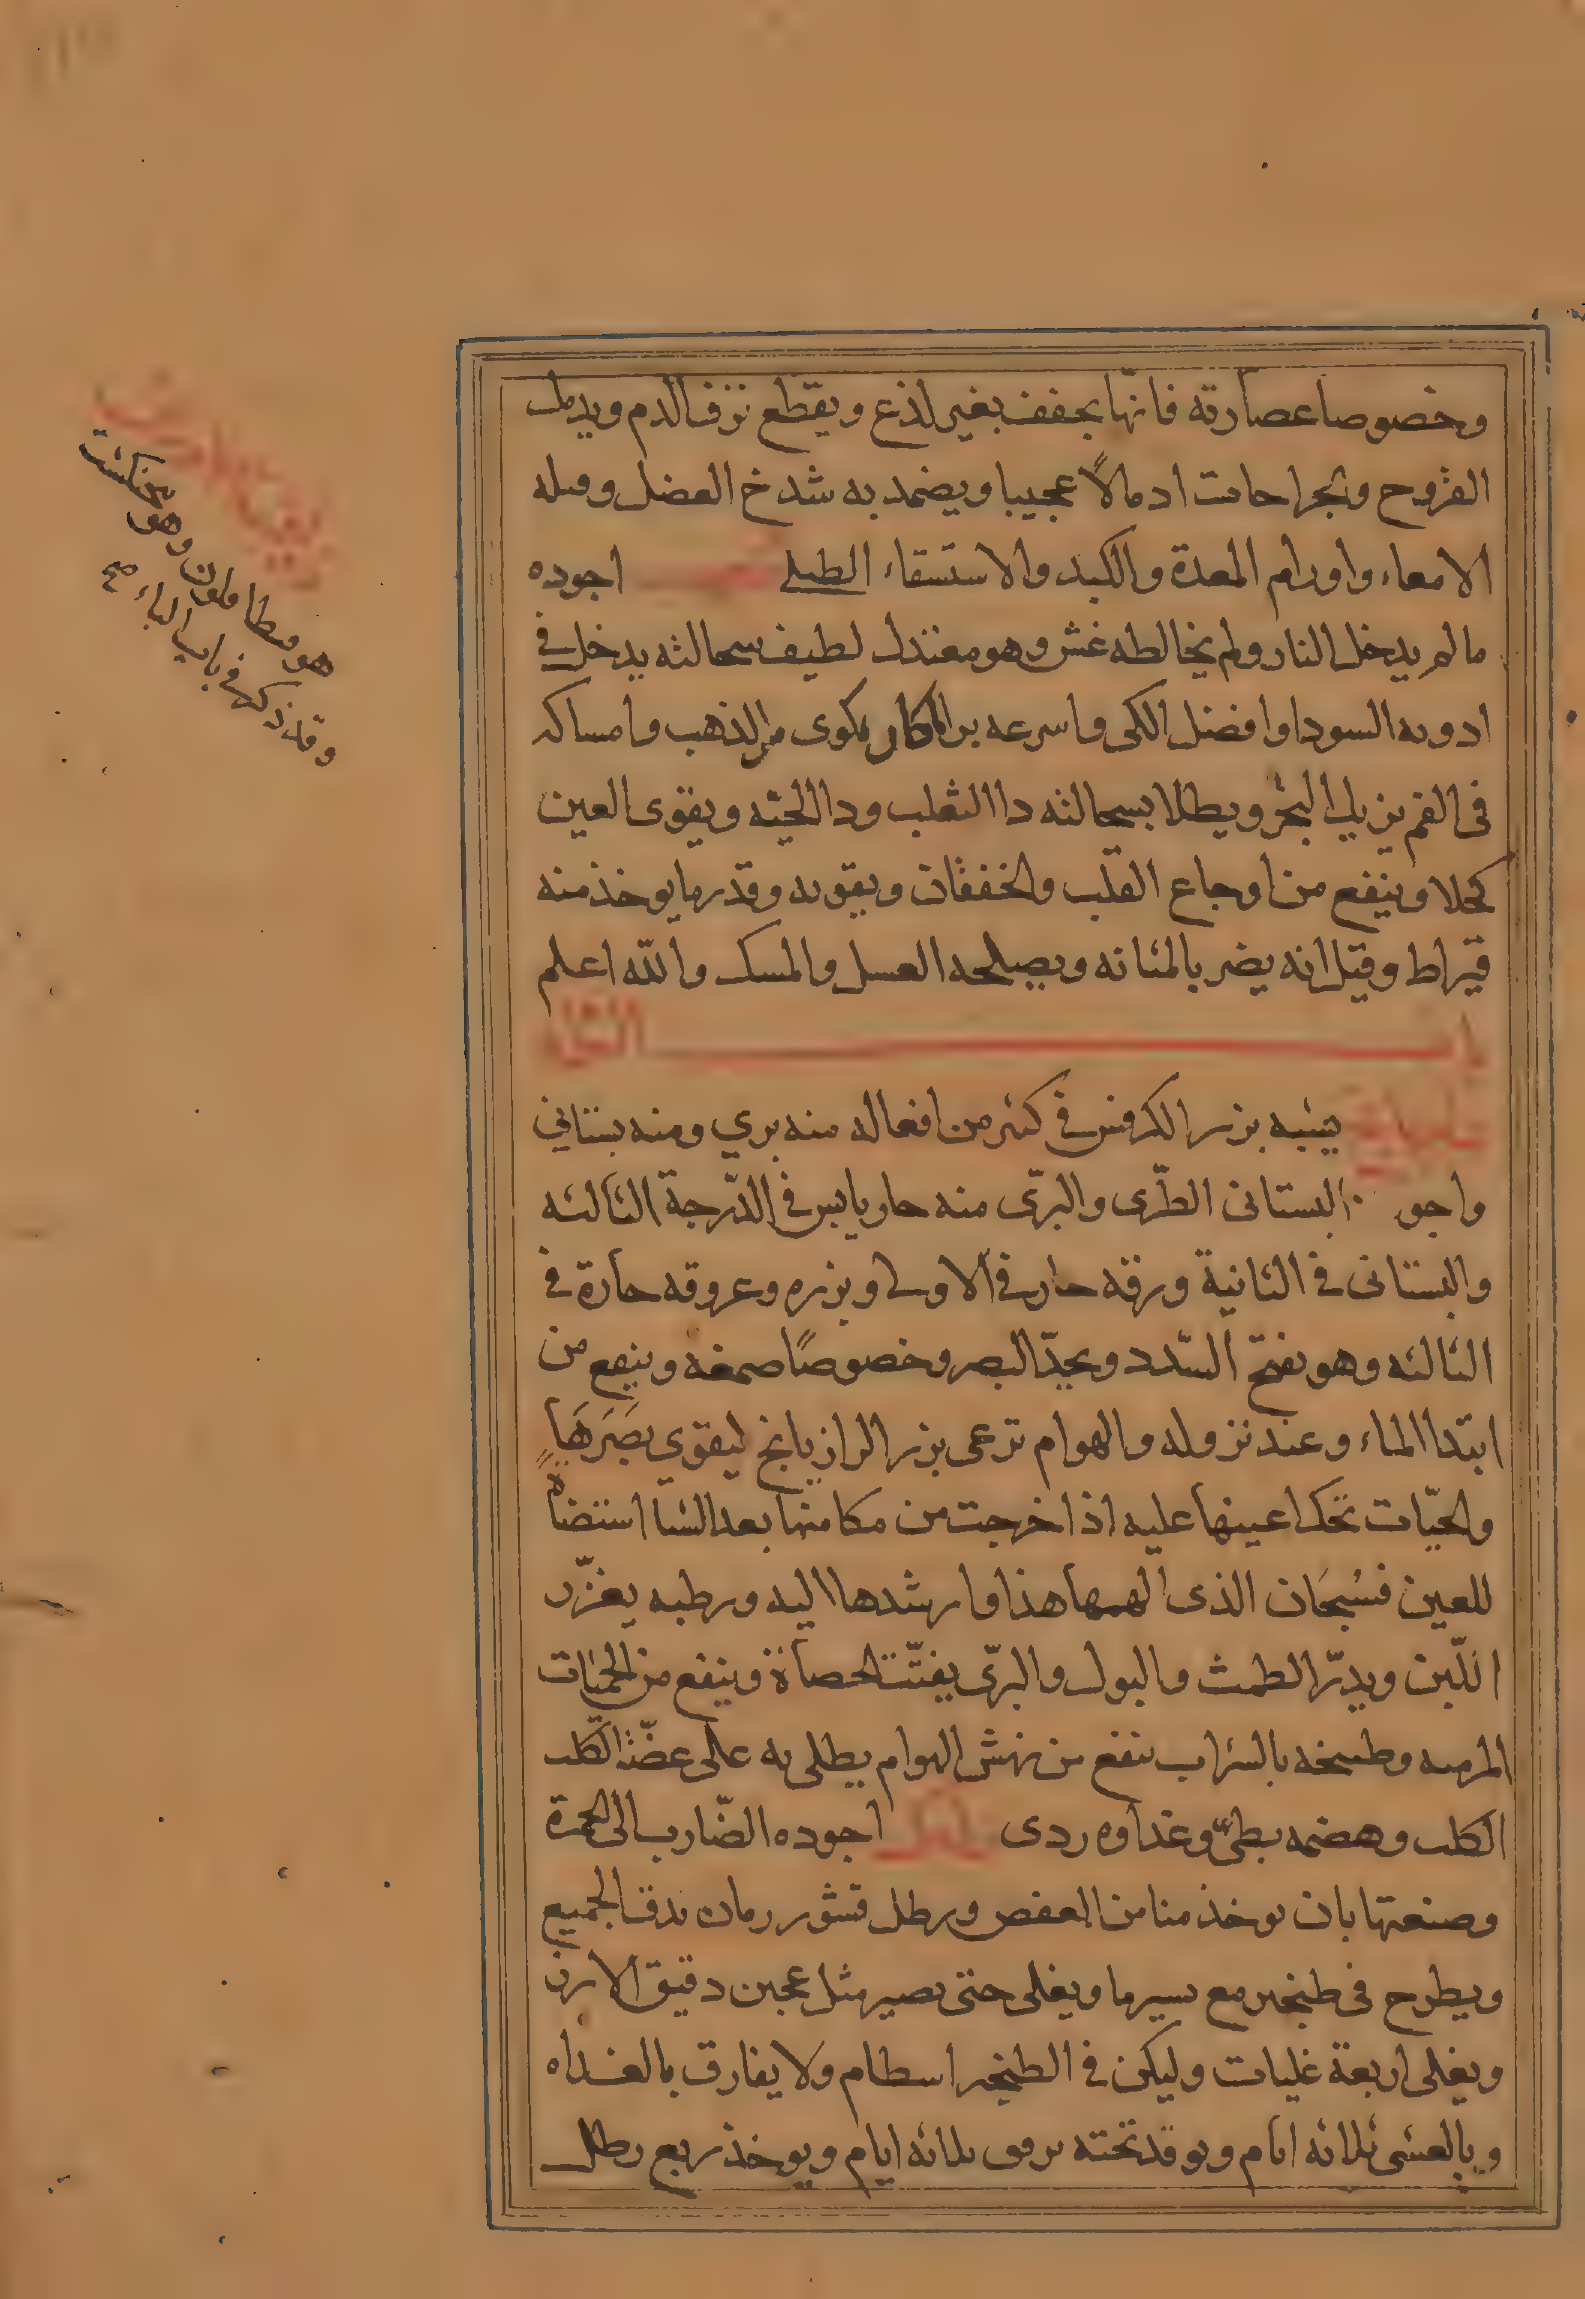 وخصوصا عصارته فانها يجفف بغير لذع ويقطع نزف الدم ويدمل
القروح والجراحات ادمالاً عجيبا ويضمد به شدخ العضل وميله
الامعاء واورام المعدة والكبد والاستسقاء الطبلي اجوده
مالم يدخل النار ولم يخالطه غش وهو معتدل لطيف سحالته يدخل في
ادويه السودا وافضل الكى واسرعه برا ماكان بكوى من الذهب وامساكه
فى الفم يزيل البخر ويطلا بسحالته دا الثعلب ودا الحيّه ويقوى العين
كحلا وينفع من اوجاع القلب والخفقان ويقويه وقدر ما يوخذ منه
قيراط وقيل انه يضر بالمثانه ويصلحه العسل والمسك والله اعلم
باب الرا
رازيانج يشبه بزر الكرفس في كثير من افعاله منه بري ومنه بستاني
واجو البستانى الطّرى والبرّى منه حار يابس في الدّرجة الثالثه
والبستانى في الثانية ورقه حار في الاولى وبزره وعروقه حارة في
الثالثه وهو يفتح السّدد ويحدّ البصر وخصوصًا صمغه وينفع من
ابتدا الماء وعند نزوله والهوام ترعى بزر الرازيانج ليقوي بَصَرَهَا
والحيّات تحكّ اعينها عليه اذا خرجت من مكامنها بعد الشتا استضاة
للعين فسُبحَان الذى الهمها هذا وارشدها اليه ورطبه يغزّر
اللّبن ويدرّ الطمث والبول والبرّى يفتّت الحصاة وينفع من الحميّات
المزمنه وطبيخه بالشراب ينفع من نهش الهوام يطلى به على عضّة الكلب
الكلب وهضمه بطئ وغذاوه ردى رامك اجوده الضّارب الى الحمرة
وصنعتها بان يوخذ منا من العفص ورطل قشور رمان يدق الجميع
ويطرح فى طنجير مع يسير ما ويغلى حتى يصير مثل عجين دقيق الارز
ويغلى اربعة غليات وليكن في الطنجير اسطام ولا يفارق بالغداه
وبالعشى ثلاثه ايام ويوقد تحته برفق ثلاثه ايام ويوخذ ربع رطل
هو وهو بنجنكشت
وقد ذكر في باب الباء صح